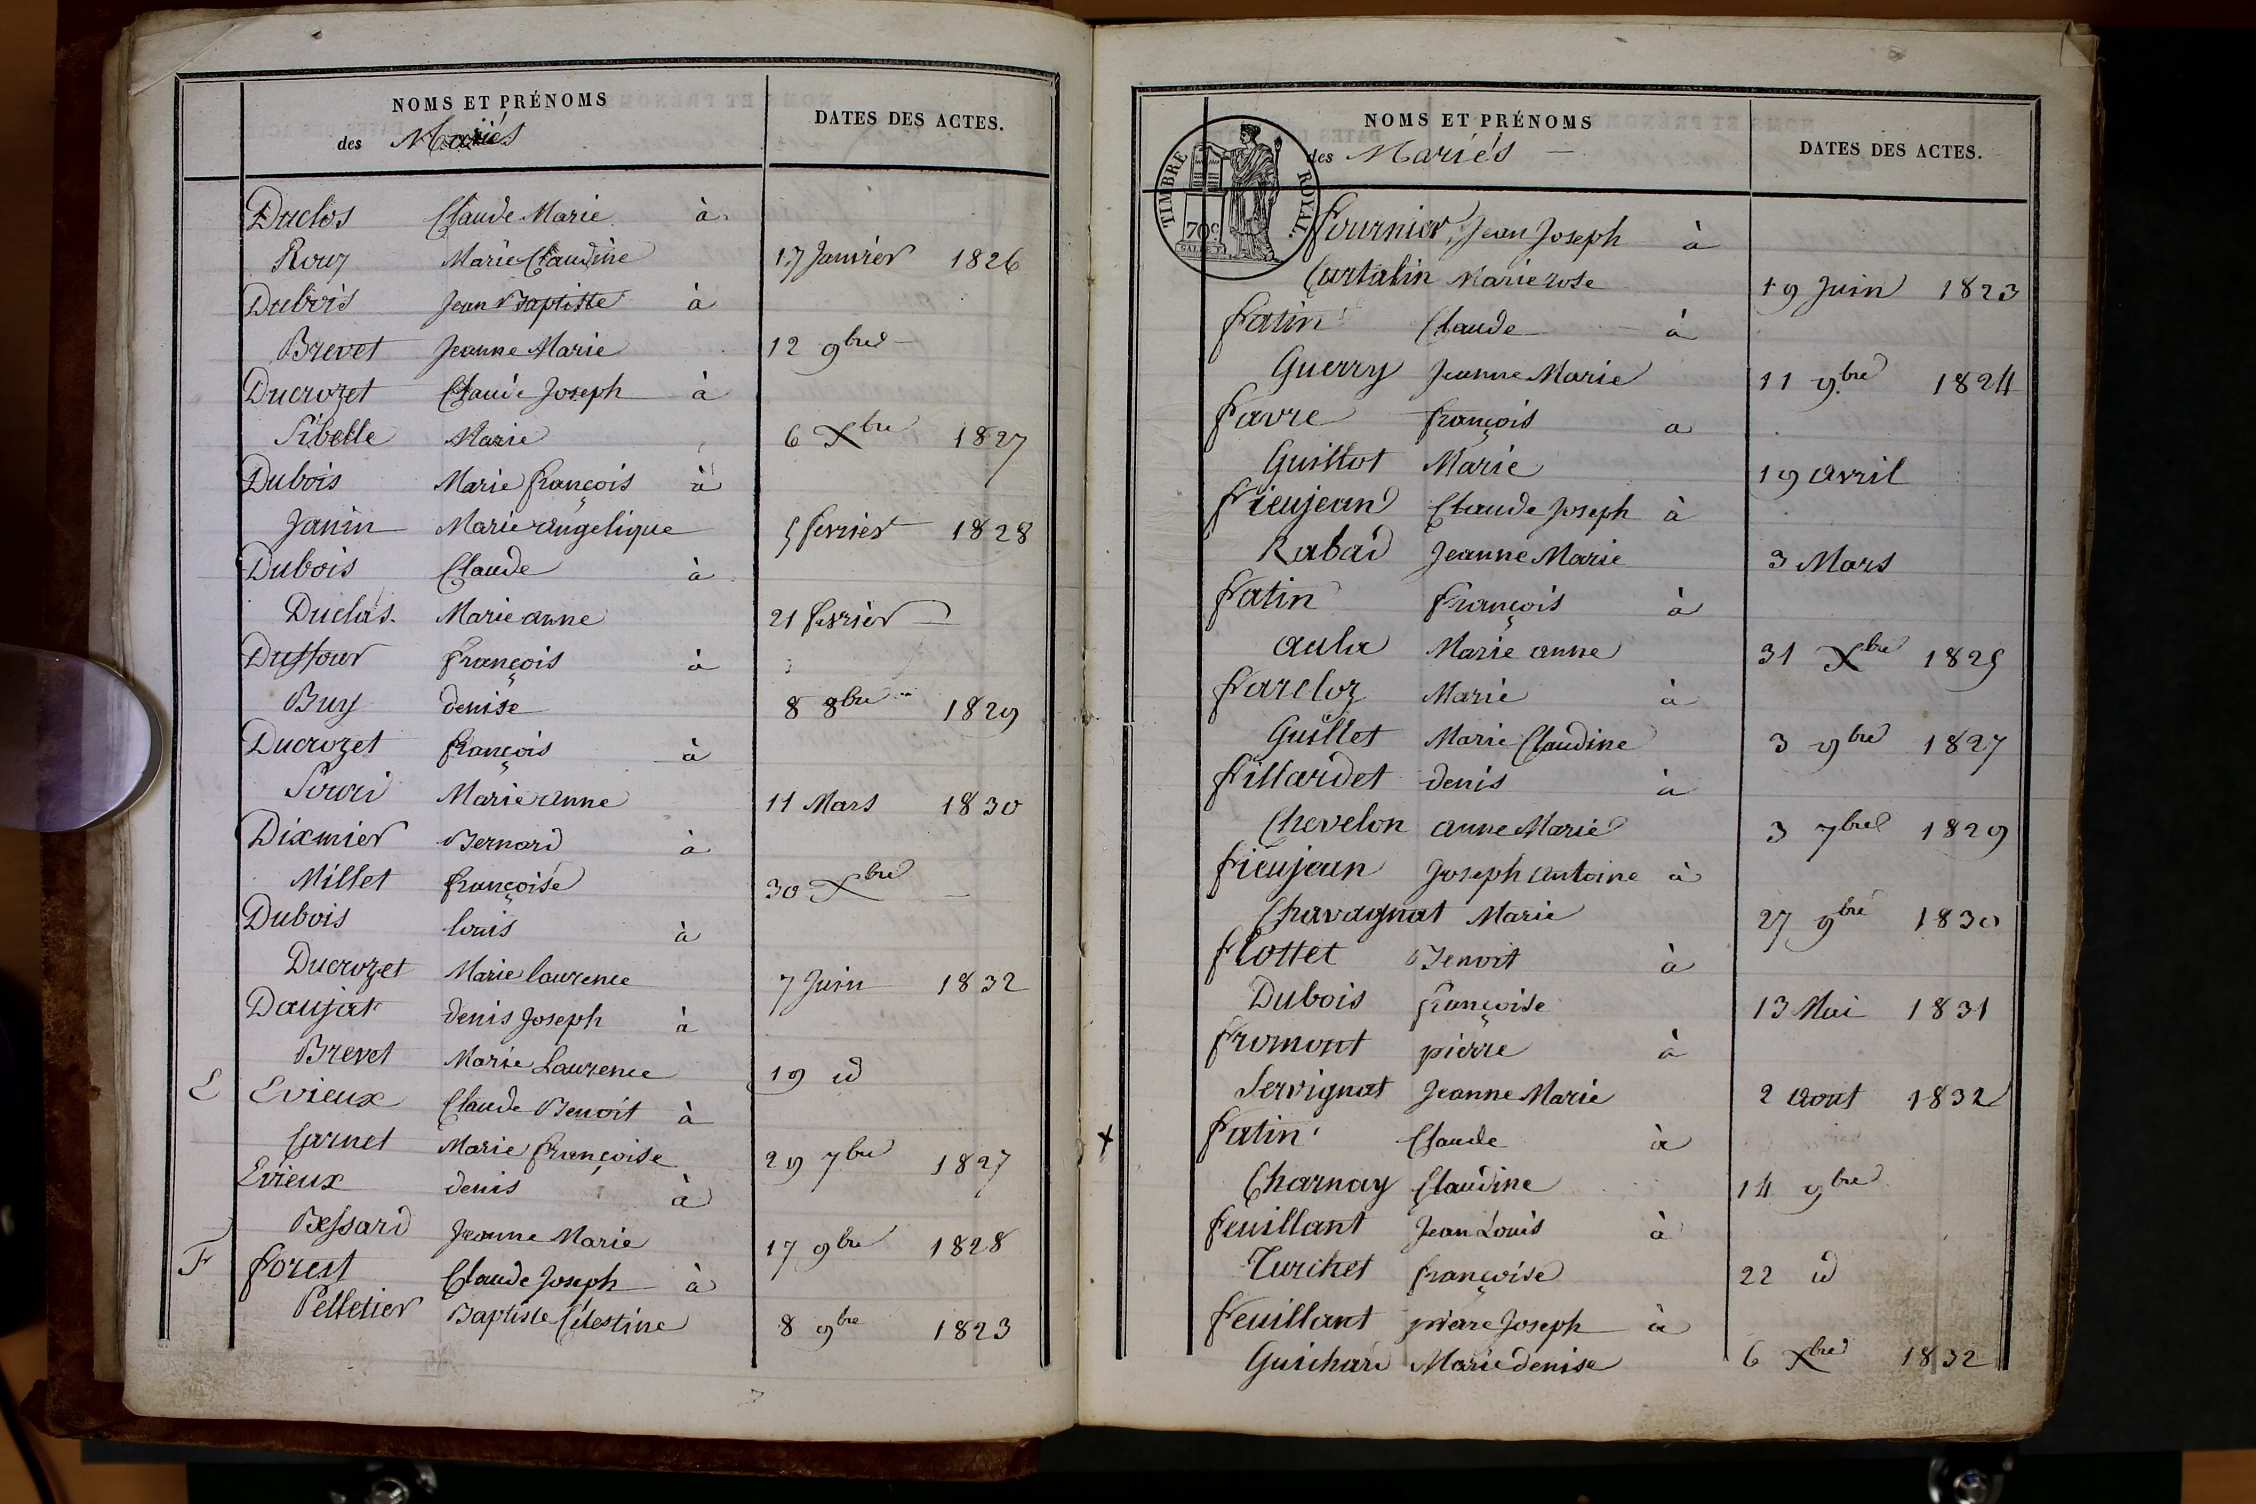 NOMS ET PRÉNOMS
des Mariés
DATES DES ACTES.
Duclos Claude Marie à
Roux Marie Claudine 17 Janvier 1826
Dubois Jean Baptiste à
Brevet Jeanne Marie 12 9bre -
Ducrozet Claude Joseph à
Sibelle Marie 6 Xbre 1827
Dubois Marie françois à
Janin Marie angelique 5 fevrier 1828
Dubois Claude à
Duclas. Marie anne 21 fevrier —
Duffour françois à
Buy denise 8 8bre 1829
Ducrozet françois à
Marie anne 11 Mars 1830
Dixmier Bernard à
Millet françoise 30 Xbre —
Dubois louis à
Ducrozet Marie laurence 7 Juin 1832
Daujat denis Joseph à
Brevet Marie Laurence 19 id
E Evieux Claude Benoit à
Carnet Marie françoise 29 7bre 1827
Evieux denis à
Bessard Jeanne Marie 17 9bre 1828
F forest Claude Joseph à
Pelletier Baptiste Célestine 8 9bre 1823
NOMS ET PRÉNOMS
des Mariés —
DATES DES ACTES.
TIMBRE ROYAL.
70c
fournier, Jean Joseph à
Curtalin Marie rose 19 Juin 1823
fatin Claude à
Guerry Jeanne Marie 11 9bre 1824
favre françois a
Guillot Marie 19 avril
frieujean Claude Joseph à
Rabad Jeanne Marie 3 Mars
fatin françois à
aula Marie anne 31 Xbre 1825
fareloz Marie à
Guillet Marie Claudine 3 9bre 1827
fillardet denis à
Chevelon anne Marie 3 7bre 1829
frieujean Joseph antoine à
Chavagnat Marie 27 9bre 1830
flottet Benoit à
Dubois françoise 13 Mai 1831
fromont pierre à
Servignat Jeanne Marie 2 aout 1832
fatin Claude à
Charnay Claudine 14 9bre
feuillant Jean Louis à
Turchet françoise 22 id
feuillant pierre Joseph à
Guichard Marie denise 6 Xbre 1832